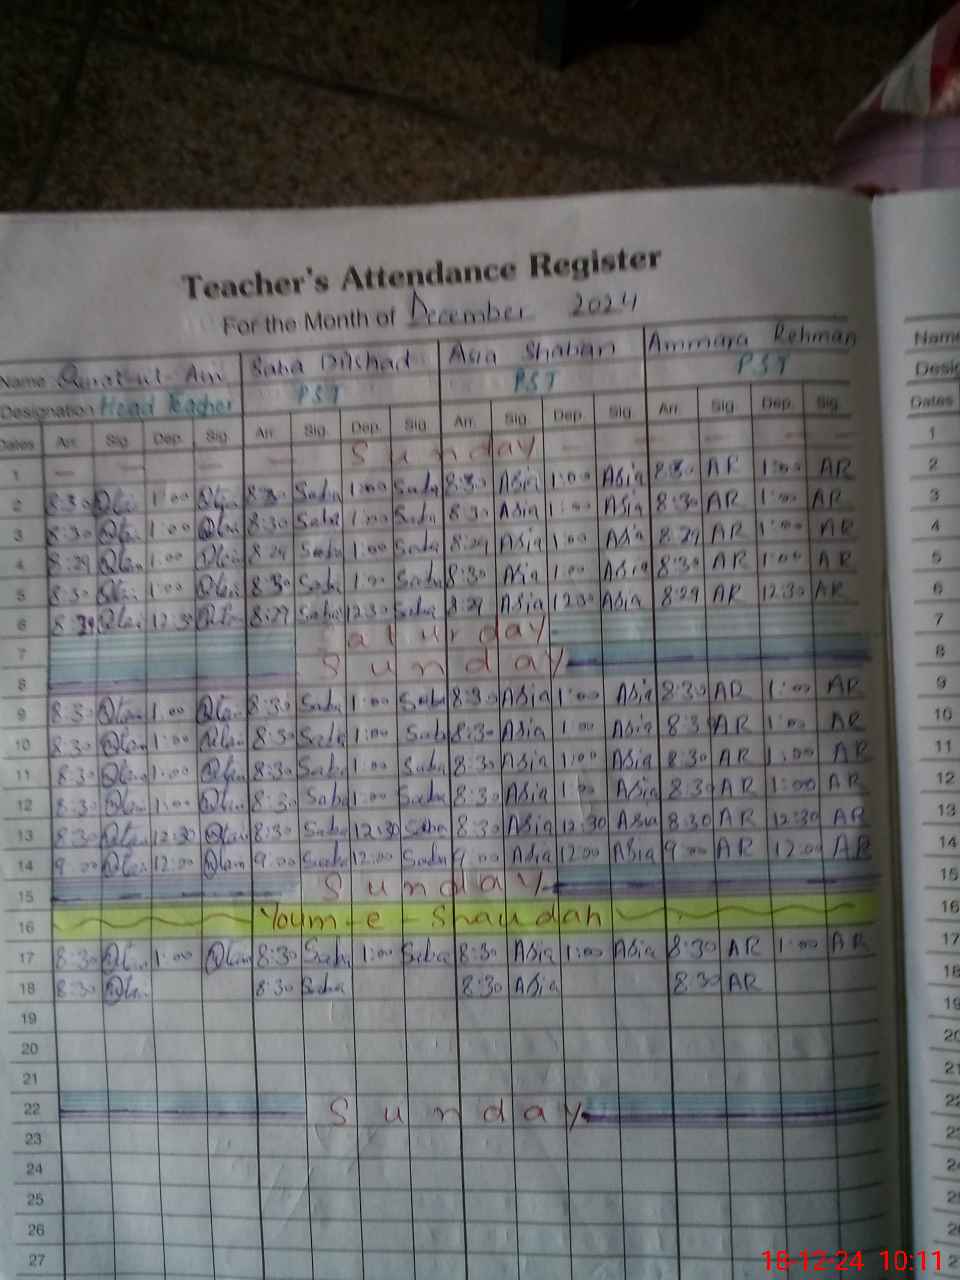 Teacher's Attendance Register
For the Month of December 2024
Name Qurat ul Ain Saba Dilshad Asia Shaban Ammara Rehman Name
Designation Head Teacher PST PST PST
Dates Arr. Sig. Dep. Sig. Arr. Sig. Dep. Sig. Arr. Sig. Dep. Sig. Arr. Sig. Dep. Sig. Dates
1 Sunday 1
2 8:30 1:00 8:30 Saba 1:00 Saba 8:30 Asia 1:00 Asia 8:30 AR 1:00 AR 2
3 8:30 1:00 8:30 Saba 1:00 Saba 8:30 Asia 1:00 Asia 8:30 AR 1:00 AR 3
4 8:29 1:00 8:29 Saba 1:00 Saba 8:29 Asia 1:00 Asia 8:29 AR 1:00 AR 4
5 8:30 1:00 8:30 Saba 1:00 Saba 8:30 Asia 1:00 Asia 8:30 AR 1:00 AR 5
6 8:29 12:30 8:29 Saba 12:30 Saba 8:29 Asia 12:30 Asia 8:29 AR 12:30 AR 6
7 Saturday 7
8 Sunday 8
9 8:30 1:00 8:30 Saba 1:00 Saba 8:30 Asia 1:00 Asia 8:30 AR 1:00 AR 9
10 8:30 1:00 8:30 Saba 1:00 Saba 8:30 Asia 1:00 Asia 8:30 AR 1:00 AR 10
11 8:30 1:00 8:30 Saba 1:00 Saba 8:30 Asia 1:00 Asia 8:30 AR 1:00 AR 11
12 8:30 1:00 8:30 Saba 1:00 Saba 8:30 Asia 1:00 Asia 8:30 AR 1:00 AR 12
13 8:30 12:30 8:30 Saba 12:30 Saba 8:30 Asia 12:30 Asia 8:30 AR 12:30 AR 13
14 9:00 12:00 9:00 Saba 12:00 Saba 9:00 Asia 12:00 Asia 9:00 AR 12:00 AR 14
15 Sunday 15
16 Youm-e-Shaudah 16
17 8:30 1:00 8:30 Saba 1:00 Saba 8:30 Asia 1:00 Asia 8:30 AR 1:00 AR 17
18 8:30 8:30 Saba 8:30 Asia 8:30 AR 18
19 19
20 20
21 21
22 Sunday 22
23 23
24 24
25 25
26 26
27
18-12-24 10:11